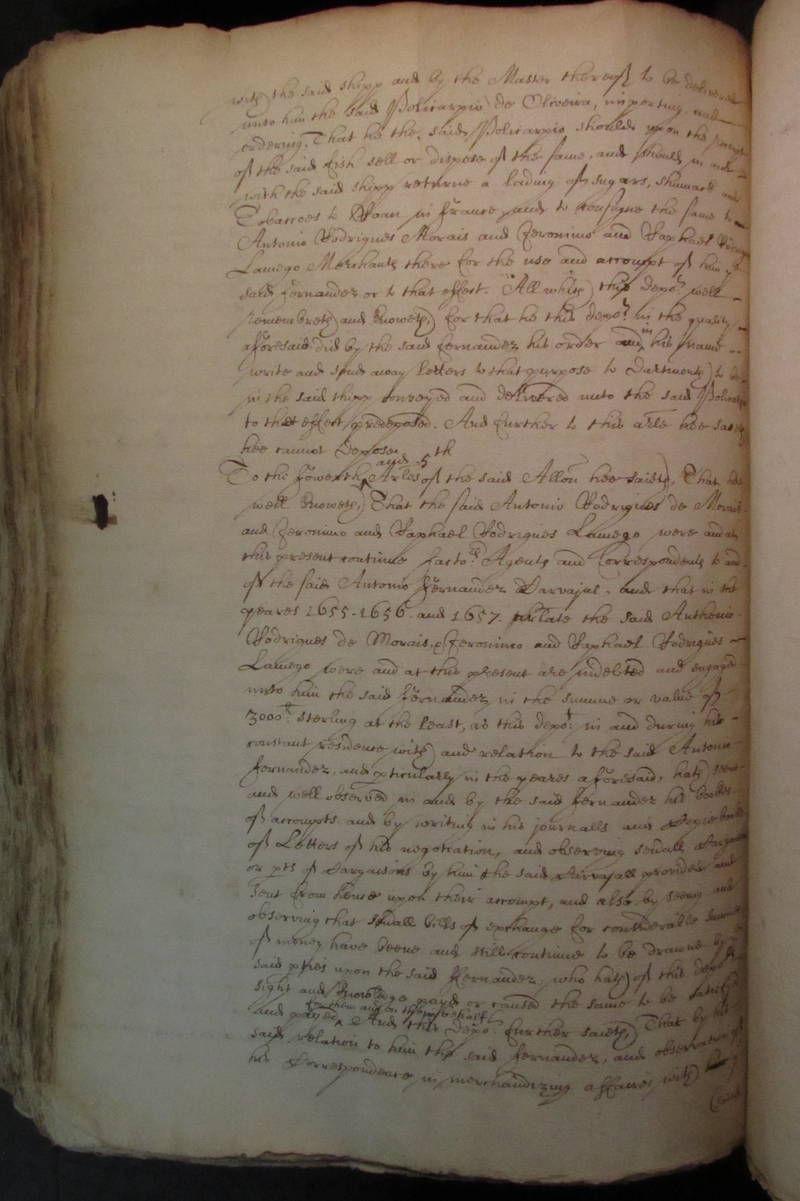 with the said shipp and by the Master thereof to be delivered
unto him the said Policarpio de Oliveira, importing and
ordering, That he the said Policarpio should upon the
of the said fish sell or dispose of the same, and should in and
with the said shipp returne a lading of sugars, shumack and
Tobaccoes to Roan in france and to consigne the same to
Antonio Rodrigues Morais and Jeronimo and Raphael Rodrigues
Lamego Merchants there for the use and accompt of him the
said fernandez or to that effect. All which this depot well
remembreth and knoweth, for that he this depot in the quality
aforesaid did by the said fernandez his order and in his name
write and send away letters to that purpose to Dartmouth to be
in the said shipp conveyed and delivered unto the said
to that effect predeposed. And further to this arle hee saith
hee cannot depose.
To the fowerth and 5th Arles of the said Allon hee saieth, That hee
well knoweth That the said Antonio Rodrigues de Morais
and Jeronimo and Raphael Rodrigues Lamego were and at
this present continue factors Agents and Correspondents to and
of the said Antonio fernandez Carvajal, and that in the
yeares 1655. 1656. and 1657. arlate the said Anthonio
Rodrigues de Morais, Jeronimo and Raphael Rodrigues
Lamego were and at this present are indebted and engaged
unto him the said fernandez in the summe or value of
3000li sterling at the least, as this depot in and during his
constant residence with and relation to the said Antonio
fernandez, and pticularly in the yeares aforesaid, hath seene
and well observed in and by the said fernandez his bookes
of accompts and by writing in his journalls and Copie bookes
of Letters of his negotiation, and observing sevall Cargaisons
or pts of Cargaisons by him the said Carvajall provided and
sent from hence upon their accompt, and also by seeing and
observing that sevall bills of exchange for considerable summes
of money have beene and still continue to be drawne by the
said pties upon the said fernandez, who hath of this depots
sight and knowledge payd or caused the same to be satisfyed
and payed for them and on their behalf. And this depot further saieth, That by his
said relation to him the said fernandez, and observation of
his Correspondence in merchandizing affaires with